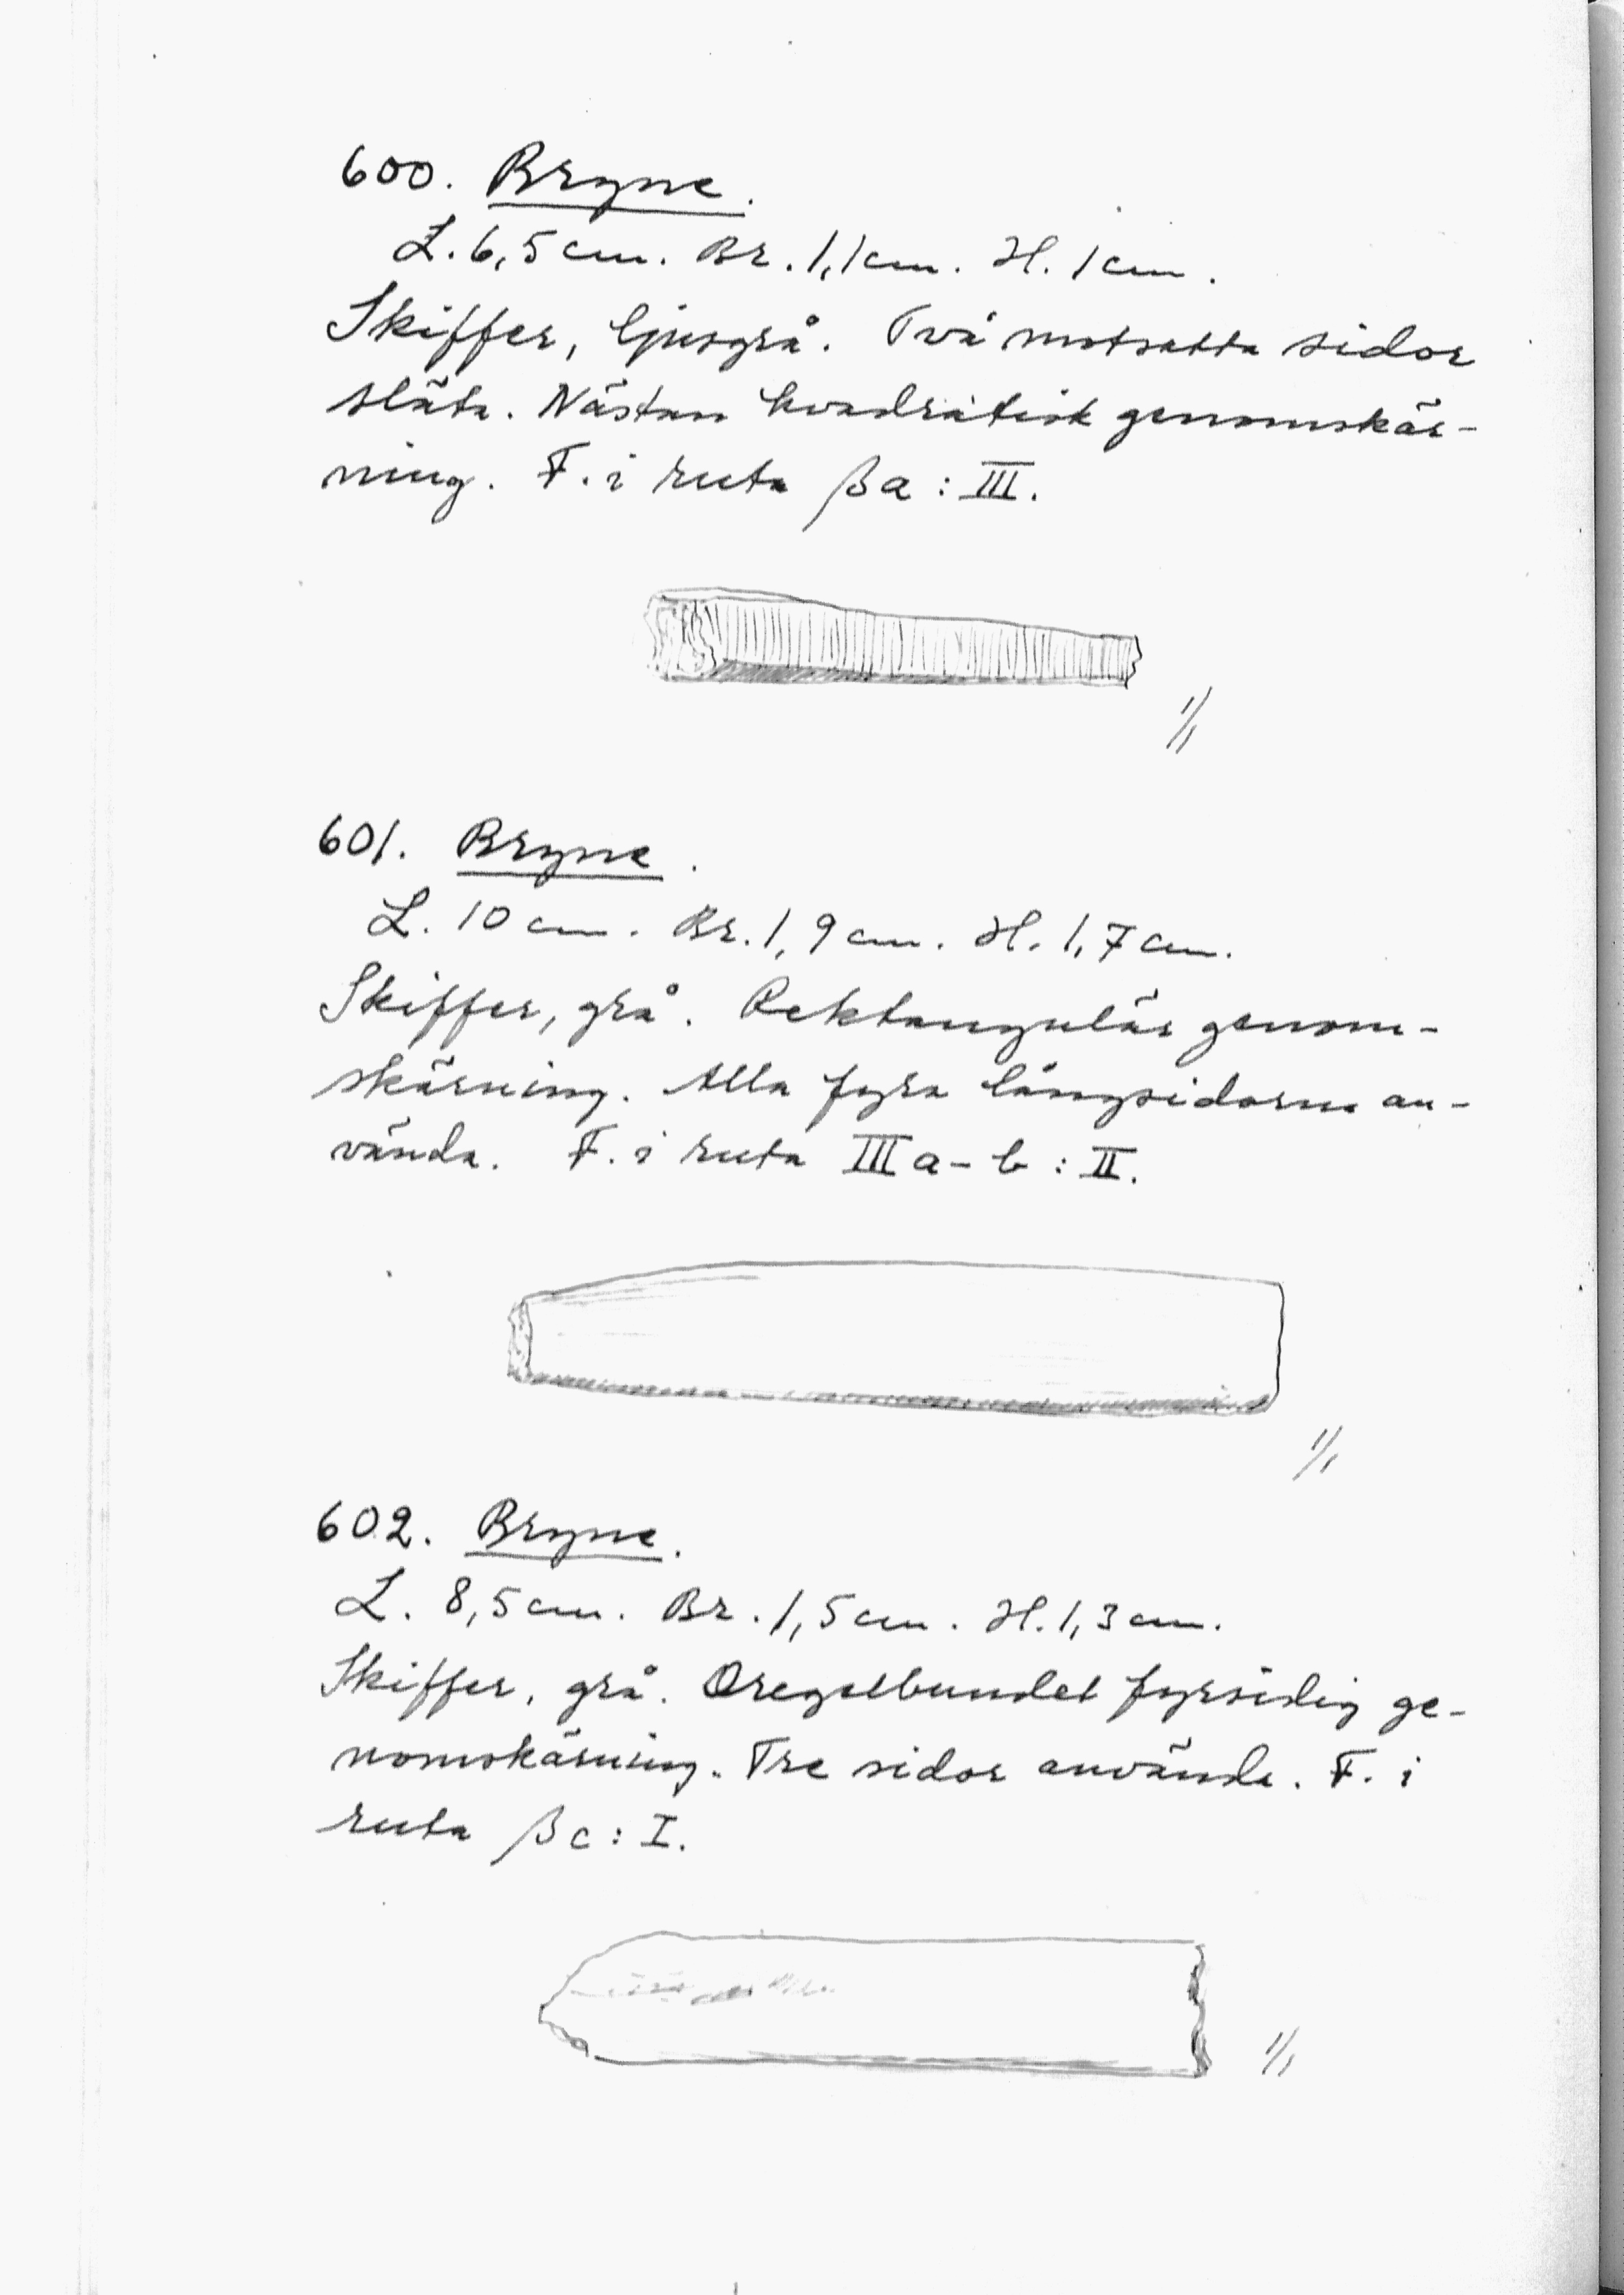 600. Bryne.
L. 6,5 cm. Br. 1,1 cm. H. 1 cm.
Skiffer, ljusgrå. Två motsatta sidor
släta. Nästan kvadratisk genomskär-
ning. F. i ruta βa : III.
1/1
601. Bryne.
L. 10 cm. Br. 1,9 cm. H. 1,7 cm.
Skiffer, grå. Rektangulär genom-
skärning. Alla fyra långsidorna an-
vända. F. i ruta III a-b : II.
1/1
602. Bryne.
L. 8,5 cm. Br. 1,5 cm. H. 1,3 cm.
Skiffer, grå. Oregelbundet fyrsidig ge-
nomskärning. Tre sidor använda. F. i
ruta βc : I.
1/1